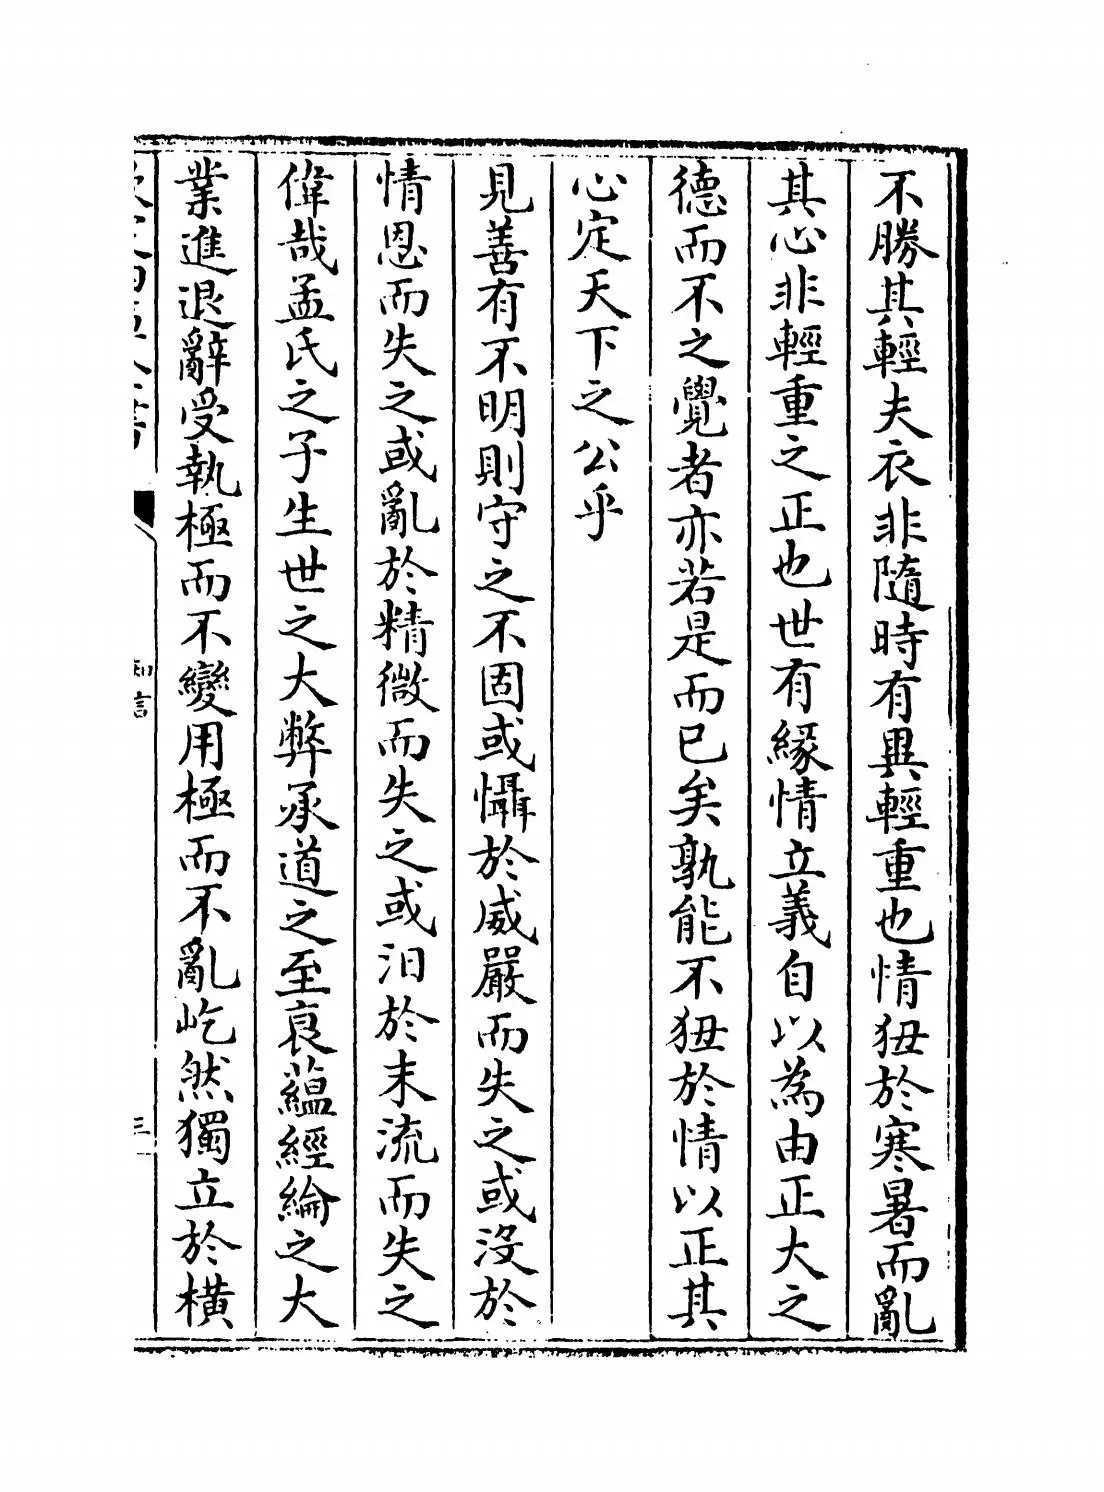 不勝其輕夫衣非隨時有異輕重也情狃於寒暑而亂
其心非輕重之正也世有緣情立義自以為由正大之
德而不之覺者亦若是而已矣孰能不狃於情以正其
心定天下之公乎
見善有不明則守之不固或懾於威嚴而失之或沒於
情恩而失之或亂於精微而失之或汩於末流而失之
偉哉孟氏之子生世之大弊承道之至衰蘊經綸之大
業進退辭受執極而不變用極而不亂屹然獨立於橫
知言
三